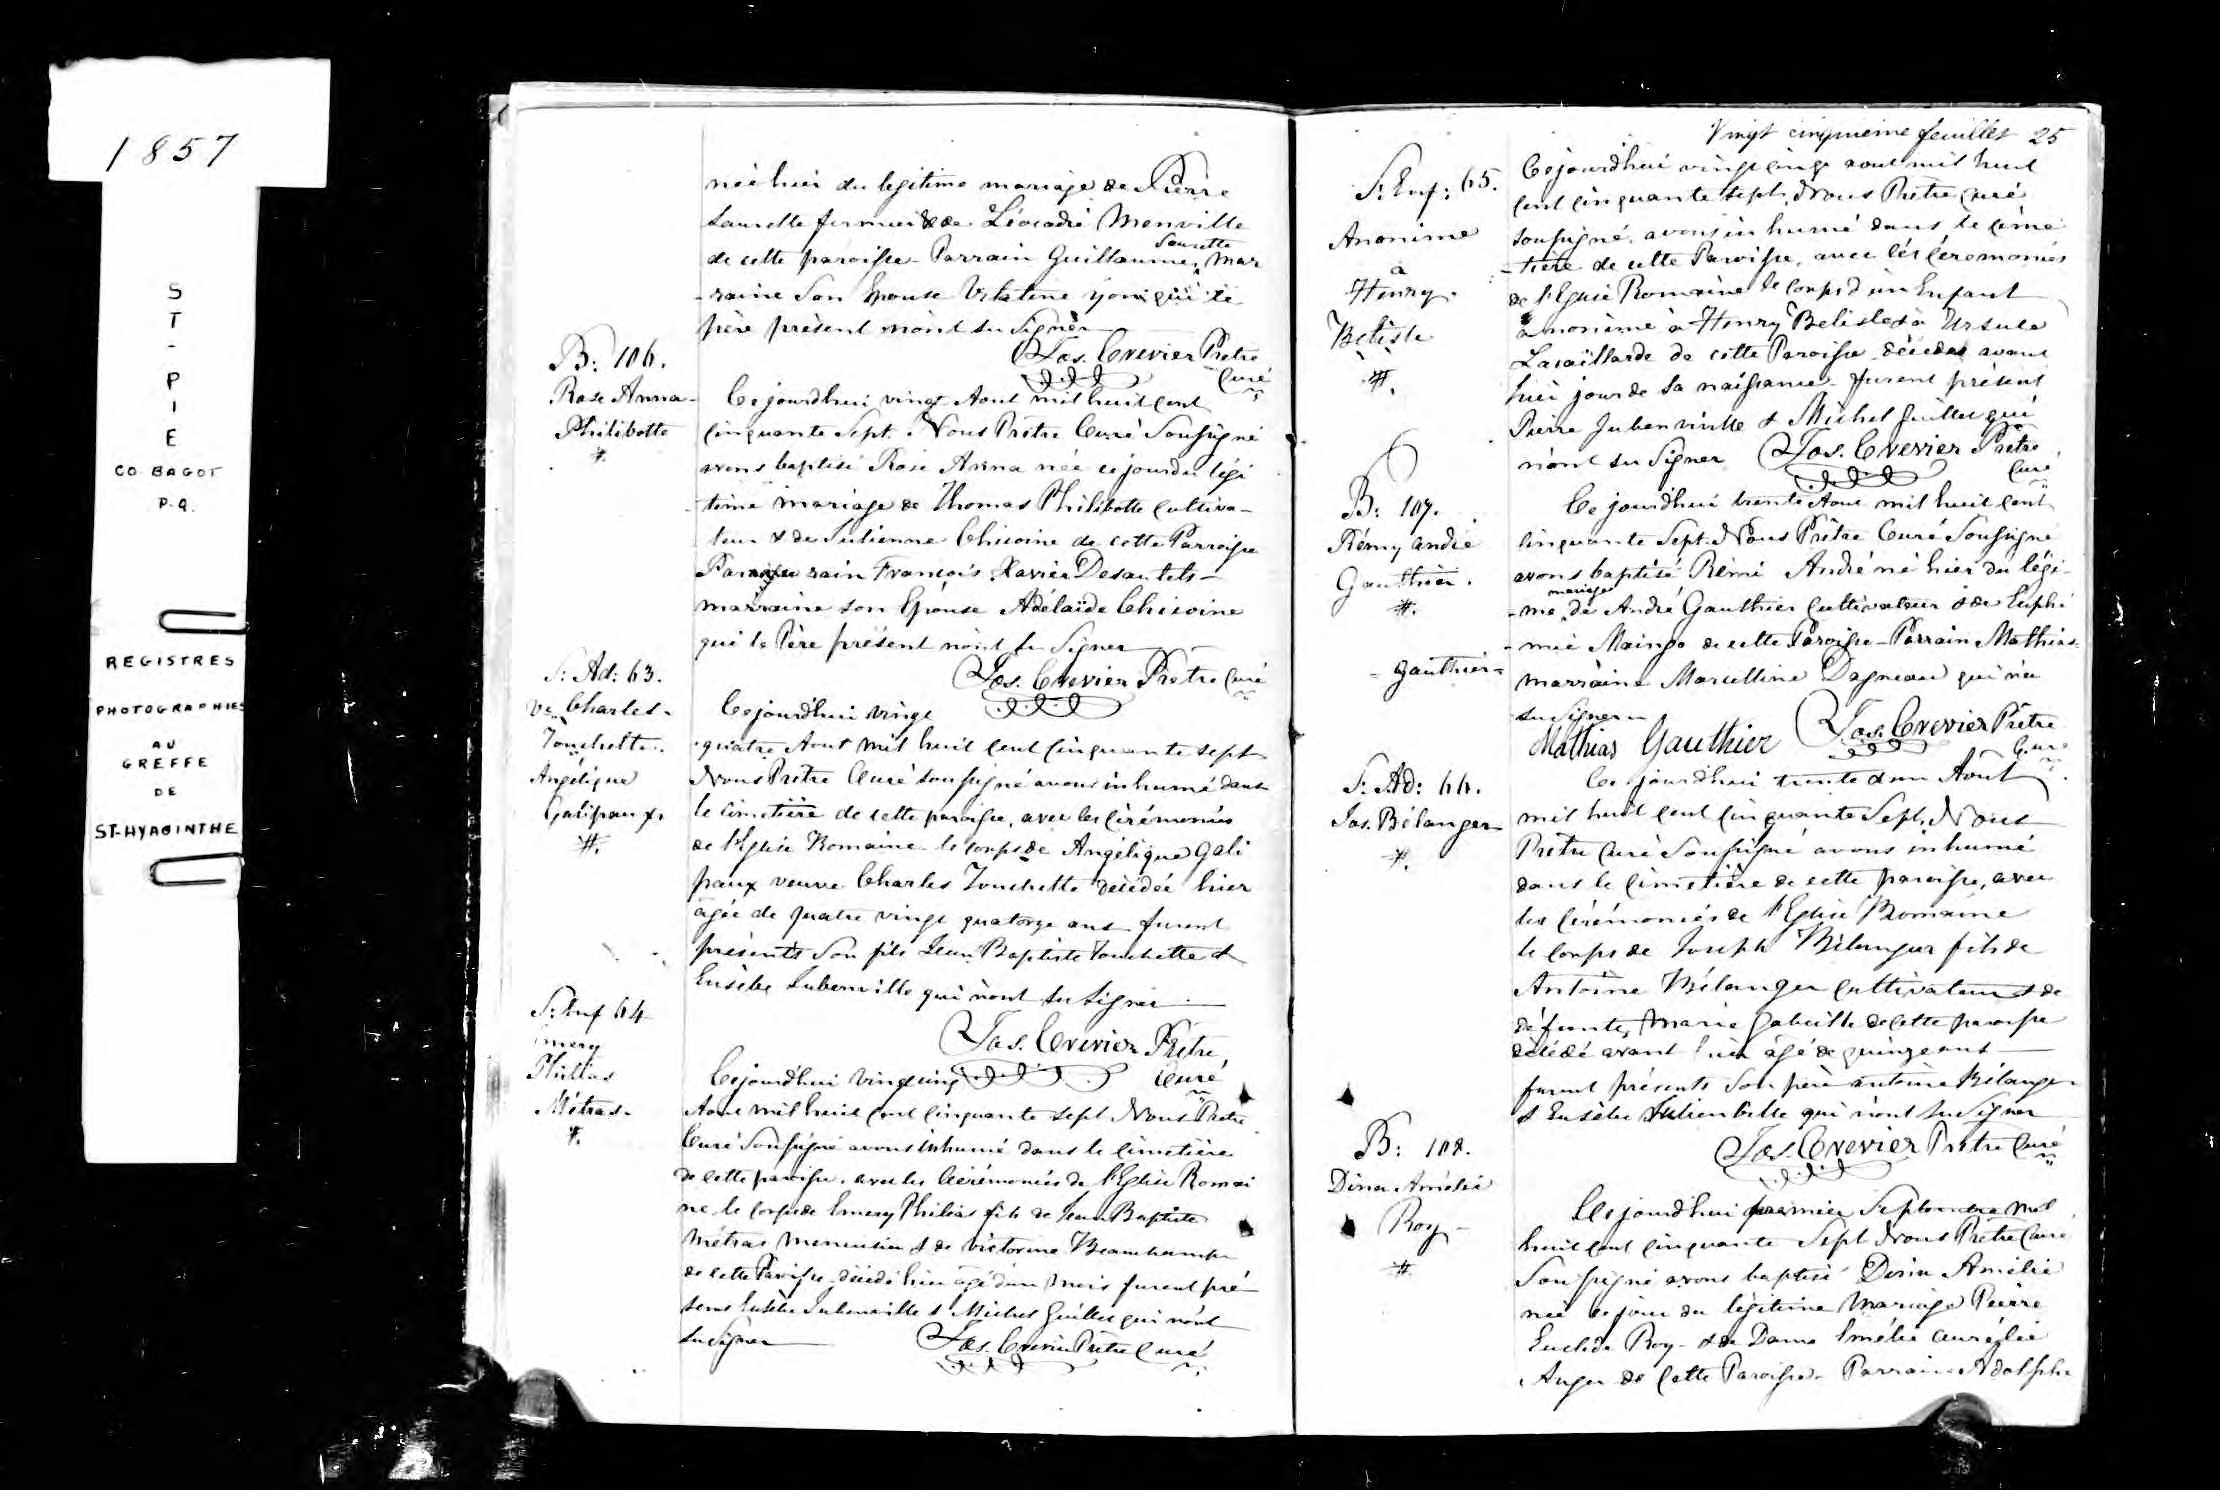 1857
S
T
-
P
I
E
CO. BAGOT
P.Q.
REGISTRES
PHOTOGRAPHIES
AU
GREFFE
DE
ST-HYACINTHE
née hier du legitime mariage de Pierre
fermier & de Léocadie Monville
de cette paroisse - Parrain Guillaume Mar
-raine Son Epouse qui le
père présent n'ont su Signer
Jos. Crevier Prêtre
Curé
B: 106.
Rose Anna
Philibotte
#.
Ce jourdhui vingt Aout mil huit cent
cinquante Sept. Nous Prêtre Curé Soussigné
avons baptisé Rose Anna née ce jour du légi
-time mariage de Thomas Philibotte Cultiva-
teur & de Julienne Chicoine de cette Parroisse
rain Francois Xavier Desautels -
marraine son Epouse Adélaïde Chicoine
qui le Père présent n'ont su Signer
Jos. Crevier Prêtre Curé
S: Ad: 63.
Ve. Charles
Touchette.
Angélique
Galipaux.
#.
Ce jourdhui vingt
quatre Aout mil huit cent cinquante sept
Nous Prêtre Curé soussigné avons inhumé dans
le cimetière de cette paroisse, avec les cérémonies
de l'Eglise Romaine le corps de Angélique Gali
paux veuve Charles Touchette décédée hier
âgée de quatre vingt quatorze ans furent
présents Son fils Jean Baptiste Touchette &
Eusèbe Jubenville qui n'ont su Signer
Jos. Crevier Prêtre,
Curé
S: Enf 64
Emery
Philias
Métras -
#.
Ce jourdhui vingt cinq
Aout mil huit cent cinquante sept Nous Prêtre
Curé Soussigné avons inhumé dans le cimetière
de cette paroisse, avec les cérémonies de l'Eglise Romai
ne le corps de Emery Philias fils de Jean Baptiste
Métras Menuisier & de Victorine Beauchamp
de cette Paroisse décédé hier âgé d'un mois furent pré
sens Eusèbe Jubenville & Michel Guillet qui n'ont
su signer
Jos. Crevier Prêtre Curé
Vingt cinquieme feuillet 25
S: Enf: 65.
Anonime
à
Henry
Belisle
#.
Ce jourdhui vingt cinq aout mil huit
cent cinquante sept, Nous Prêtre Curé
soussigné, avons inhumé dans le cime
-tière de cette Paroisse, avec les cérémonies
de l'Eglise Romaine le corps d'un Enfant
anonime à Henry Belisle & à Ursule
de cette Paroisse décédé avant
hier jour de sa naissance - furent présent
Pierre Jubenville & Michel Guillet qui
n'ont su Signer Jos. Crevier Prêtre
Curé
B: 107.
Rémy andré
Gauthier.
#.
Ce jourdhui trente Aout mil huit cent
cinquante Sept. Nous Prêtre Curé Soussigné
avons baptisé Rémi André né hier du légi-
-me mariage de André Gauthier Cultivateur & de Euphé
-mie Maingo de cette Paroisse - Parrain Mathias
- Gauthier -
marraine Marcelline Dagneau qui n'a
su signer
Mathias Gauthier Jos. Crevier Prêtre
Curé
S: Ad: 66.
Jos. Bélanger
#.
Ce jourdhui trente & un Août
mil huit cent cinquante Sept. Nous
Prêtre Curé Soussigné avons inhumé
dans le cimetière de cette paroisse, avec
les cérémonies de l'Eglise Romaine
le corps de Joseph Bélanger fils de
Antoine Bélanger Cultivateur & de
défunte, Marie de cette paroisse
décédé avant hier âgé de quinze ans
furent présents Son père antoine Bélanger
& Eusèbe qui n'ont su Signer
Jos. Crevier Prêtre Curé
B: 108.
Dina Amélie
Roy -
#
Ce jourdhui premier Septembre Mil
huit cent cinquante Sept Nous Prêtre Curé
Soussigné avons baptisé Dina Amélie
née ce jour du légitime Mariage Pierre
Euclide Roy - & de Dame Amélie Aurélie
Auger de Cette Paroisse - Parrain Adolphe